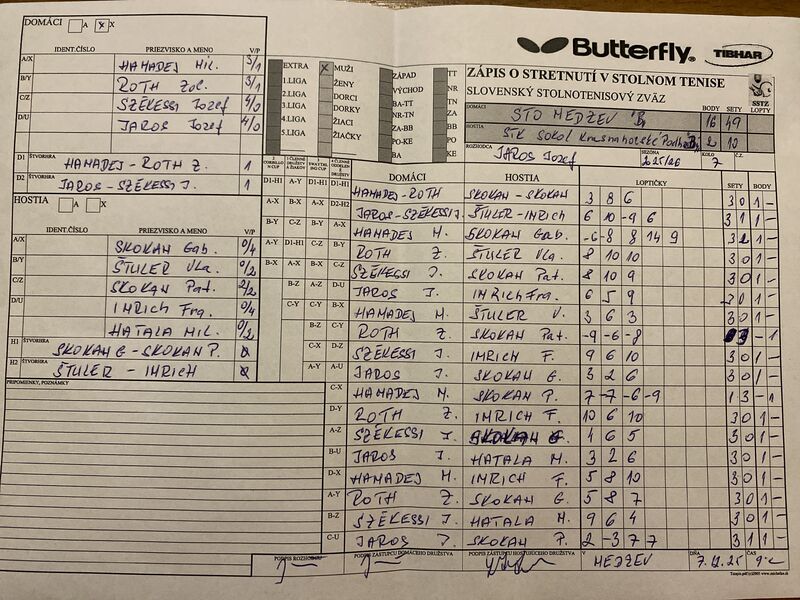 DOMÁCI A X
IDENT.ČÍSLO PRIEZVISKO A MENO V/P
A/X HAMADEJ MIL. 3/1
B/Y ROTH Zol. 3/1
C/Z SZÉKESSI Jozef 4/0
D/U JAROS Jozef 4/0
D1 ŠTVORHRA HAMADEJ - ROTH Z. 1
D2 ŠTVORHRA JAROS - SZÉKESSI J. 1
HOSTIA A X
IDENT.ČÍSLO PRIEZVISKO A MENO V/P
A/X SKOKAN Gab. 0/4
B/Y ŠTULER Vla. 0/2
C/Z SKOKAN Pat. 2/2
D/U IMRICH Fra. 0/4
HATALA MIL. 0/2
H1 ŠTVORHRA SKOKAN G - SKOKAN P. 0
H2 ŠTVORHRA ŠTULER - IMRICH 0
PRIPOMIENKY, POZNÁMKY
EXTRA X MUŽI ZÁPAD TT
1.LIGA ŽENY VÝCHOD NR
2.LIGA DORCI BA-TT TN
3.LIGA DORKY NR-TN ZA
4.LIGA ŽIACI ZA-BB BB
5.LIGA ŽIAČKY PO-KE PO
BA KE
Butterfly TIBHAR
ZÁPIS O STRETNUTÍ V STOLNOM TENISE
SLOVENSKÝ STOLNOTENISOVÝ ZVÄZ
SSTZ LOPTY
DOMÁCI STO MEDZEV "B" BODY 16 SETY 49
HOSTIA STK SOKOL Krasnohorské Podhr. B 2 10
ROZHODCA JAROS Jozef SEZÓNA 2025/26 KOLO 7 Č.Z.
DOMÁCI HOSTIA LOPTIČKY SETY BODY
D1-H1 A-Y D1-H1 D1-H1 HAMADEJ - ROTH SKOKAN - SKOKAN 3 8 6 3 0 1 -
A-X B-X A-X D2-H2 JAROS - SZÉKESSI J. ŠTULER - IMRICH 6 10 -9 6 3 1 1 -
B-Y C-Z B-Y A-X HAMADEJ M. SKOKAN Gab. -6 -8 8 14 9 3 2 1 -
A-Y D1-H1 C-Z B-Y ROTH Z. ŠTULER Vla. 8 10 10 3 0 1 -
B-X A-X B-X C-Z SZÉKESSI J. SKOKAN Pat. 8 10 9 3 0 1 -
B-Z A-Z D-U JAROS J. IMRICH Fra. 6 5 9 3 0 1 -
C-Y B-X HAMADEJ M. ŠTULER V. 3 6 3 3 0 1 -
B-Z C-Y ROTH Z. SKOKAN Pat. -9 -6 -8 0 3 - 1
C-X D-Z SZÉKESSI J. IMRICH F. 9 6 10 3 0 1 -
A-Y A-U JAROS J. SKOKAN G. 3 2 6 3 0 1 -
C-X HAMADEJ M. SKOKAN P. 7 -7 -6 -9 1 3 - 1
D-Y ROTH Z. IMRICH F. 10 6 10 3 0 1 -
A-Z SZÉKESSI J. SKOKAN G. 4 6 5 3 0 1 -
B-U JAROS J. HATALA M. 3 2 6 3 0 1 -
D-X HAMADEJ M. IMRICH F. 5 8 10 3 0 1 -
A-Y ROTH Z. SKOKAN G. 5 8 7 3 0 1 -
B-Z SZÉKESSI J. HATALA M. 9 6 4 3 0 1 -
C-U JAROS J. SKOKAN P. 2 -3 7 7 3 1 1 -
PODPIS ROZHODCU PODPIS ZÁSTUPCU DOMÁCEHO DRUŽSTVA PODPIS ZÁSTUPCU HOSŤUJÚCEHO DRUŽSTVA V MEDZEV DŇA 7.12.25 ČAS